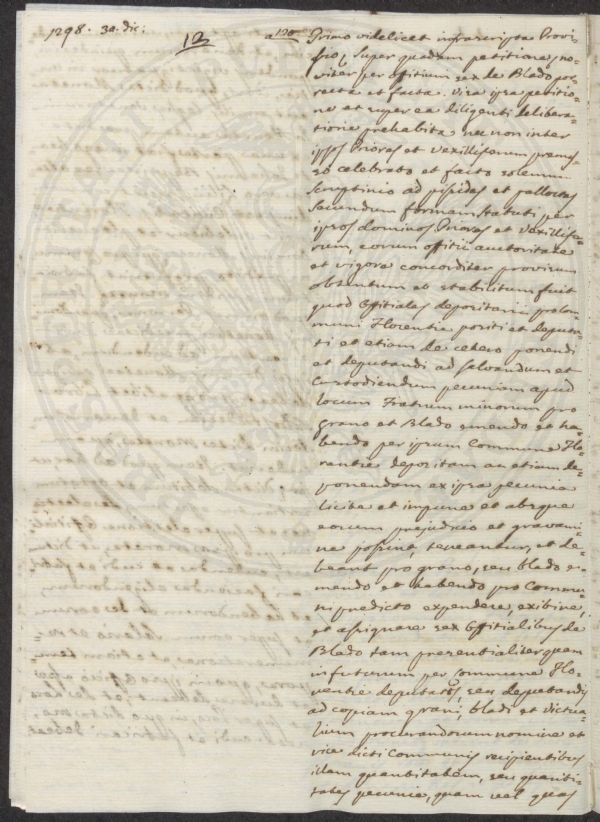 1298. 30. dic:
12
a 120
Primo videlicet infrascripta Provi=
sio, super quadam petitione no=
viter per offitium sex de Blado por
recta et facta. Visa ipsa petitio=
ne et super ea diligenti delibera=
tione prehabita nec non inter
ipsos Priores et Vexilliferum premis=
so celebrato et facto solemni
scruptinio ad pissides et palloctas
secundum formam statuti per
ipsos dominos Priores et Vexillife=
rum, eorum offitii auctoritate
et vigore concorditer provisum
obtentum et stabilitum fuit
quod Offitiales depositarii pro Com=
muni Florentie positi et deputa=
ti et etiam de cetero ponendi
et deputandi ad salvandum et
custodiendum pecuniam apud
locum Fratrum minorum pro
grano et Blado emendo et ha=
bendo per ipsum Commune Flo=
rentie depositam an etiam de=
ponendam ex ipsa pecunia
licite et impune et absque
eorum prejudicio et gravami=
ne possint, teneantur, et de=
beant pro grano, seu blado e=
mendo et habendo pro Commu=
ni predicto expendere, exibere,
et assignare sex Offitialibus de
Blado tam presentialiter quam
in futurum per Commune Flo=
rentie deputatis, seu deputandis
ad copiam grani, bladi et victua=
lium procurandorum nomine et
vice dicti Communis recipientibus
illam quantitatem, seu quanti=
tates pecunie, quam vel quas